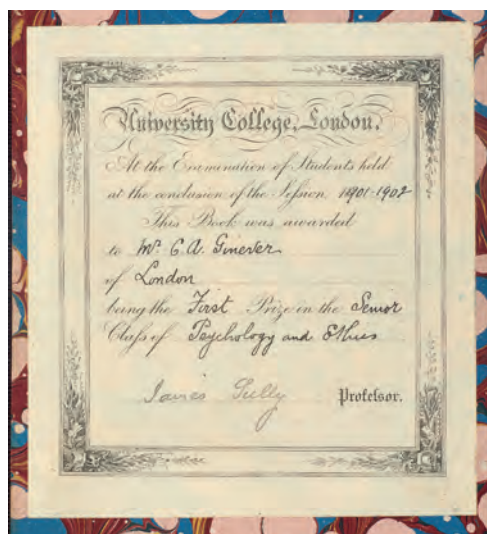 University College, London.
At the Examination of Students held
at the conclusion of the Session, 1901-1902
This Book was awarded
to Mr. C. A. Ginever
of London
being the First Prize in the Senior
Class of Psychology and Ethics
James Sully Professor.